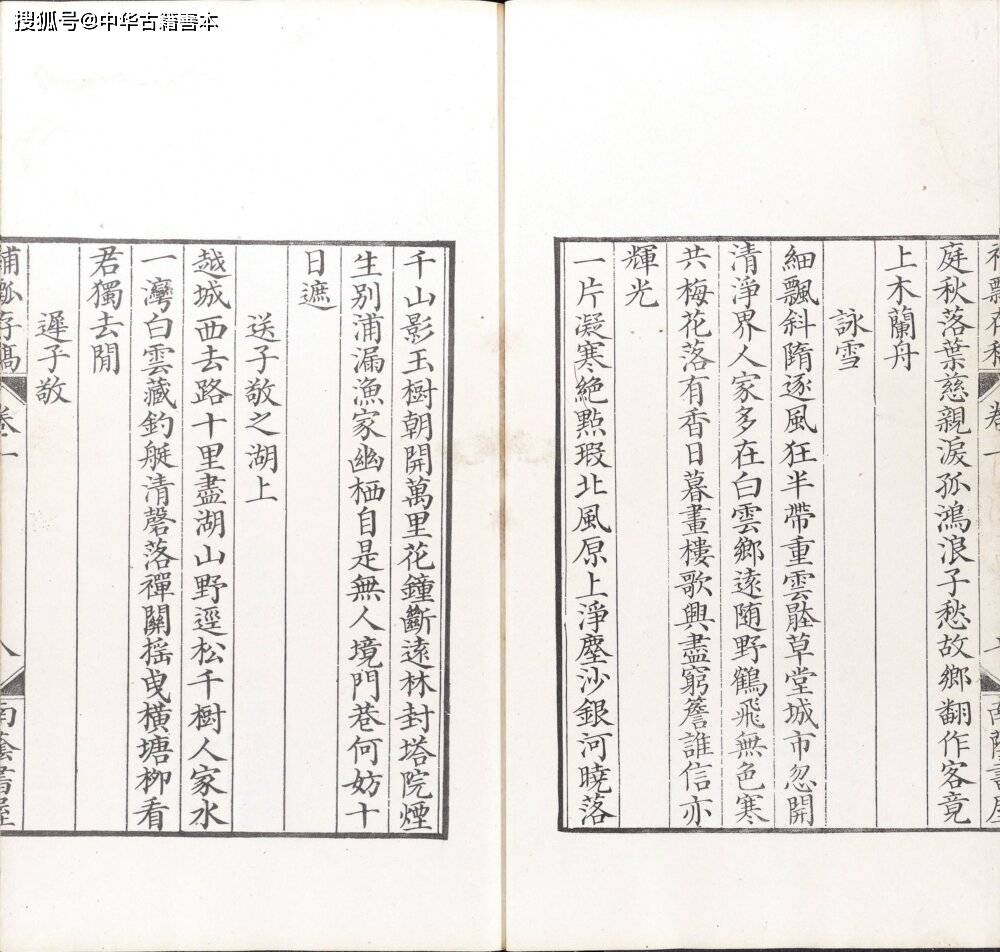 搜狐号@中华古籍善本
庭秋落葉慈親淚孤鴻浪子愁故鄉翻作客竟
上木蘭舟
詠雪
細飄斜隋逐風狂半帶重雲壓草堂城市忽開
清淨界人家多在白雲鄉遠隨野鶴飛無色寒
共梅花落有香日暮畫樓歌興盡窮簷誰信亦
輝光
一片凝寒絶點瑕北風原上淨塵沙銀河曉落
千山影玉樹朝開萬里花鐘斷遠林封塔院煙
生別浦漏漁家幽栖自是無人境門巷何妨十
日遮
送子敬之湖上
越城西去路十里盡湖山野逕松千樹人家水
一灣白雲藏釣艇清磬落禪關揺曳橫塘柳看
君獨去閒
遲子敬
卷一
八